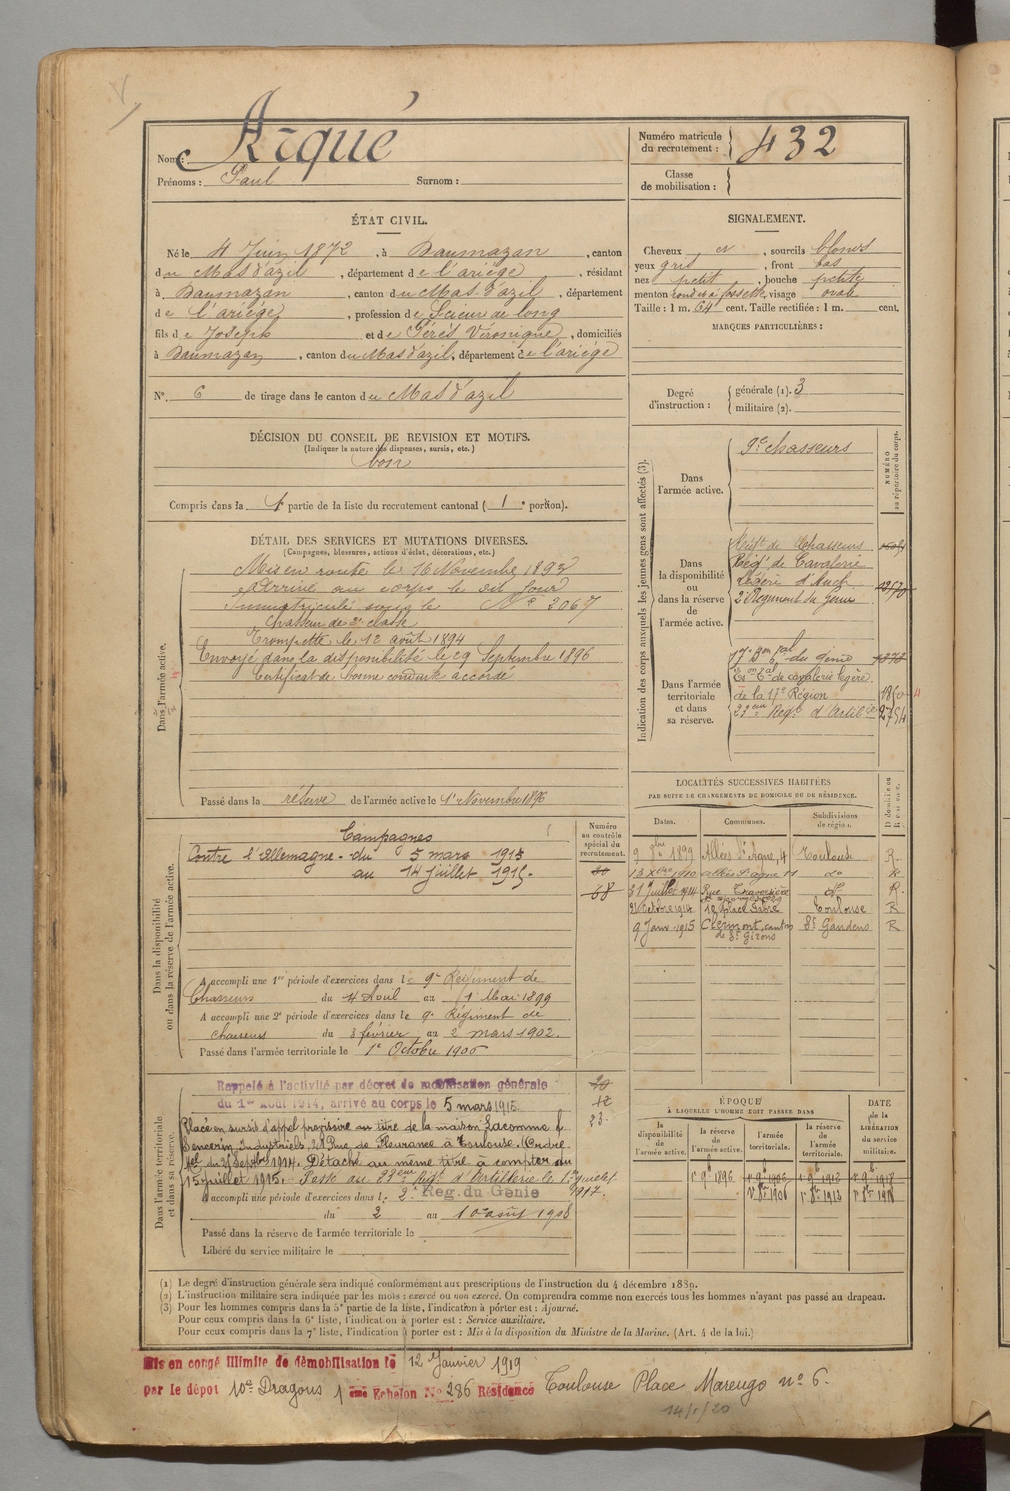 Nom : Arqué
Prénoms : Paul Surnom :
Numéro matricule du recrutement : 432
Classe de mobilisation :
ÉTAT CIVIL.
Né le 4 Juin 1872, à Daumazan, canton
du Mas d'azil, département de l'ariège, résidant
à Daumazan, canton du Mas-d'azil, département
de l'ariège, profession de Scieur de long
fils de Joseph et de Pérès Véronique, domiciliés
à Daumazan, canton du Mas d'azil, département de l'ariège
N°. 6 de tirage dans le canton du Mas d'azil
SIGNALEMENT.
Cheveux et, sourcils blonds
yeux gris, front bas
nez petit, bouche petite
menton rond et à fossette, visage oval
Taille : 1 m. 64 cent. Taille rectifiée : 1 m. cent.
MARQUES PARTICULIÈRES :
Degré d'instruction : générale (1). 3
militaire (2).
DÉCISION DU CONSEIL DE REVISION ET MOTIFS.
(Indiquer la nature des dispenses, sursis, etc.)
bon
Compris dans la 1e partie de la liste du recrutement cantonal ( 1 e portion).
DÉTAIL DES SERVICES ET MUTATIONS DIVERSES.
(Campagnes, blessures, actions d'éclat, décorations, etc.)
Dans l'armée active.
Mis en route le 16 Novembre 1893
Arrivé au corps le dit jour
Immatriculé sous le N° 2067
Chasseur de 2e classe
Trompette le 12 août 1894
Envoyé dans la disponibilité le 29 Septembre 1896
Certificat de bonne conduite accordé
Passé dans la réserve de l'armée active le 1er Novembre 1896
Indication des corps auxquels les jeunes gens sont affectés (3).
NUMÉRO au répertoire du corps.
Dans l'armée active.
9e chasseurs
Dans la disponibilité ou dans la réserve de l'armée active.
Régt de Chasseurs
Régt de Cavalerie
Légère d'Auch
2e Régiment du Génie
Dans l'armée territoriale et dans sa réserve.
17e Bon tal du génie
Eson tal de cavalerie légère
de la 17e Région 1850
23eme Regt d'Artillie 2754
Dans la disponibilité ou dans la réserve de l'armée active.
Numéro au contrôle spécial du recrutement.
68
Campagnes
Contre l'Allemagne - du 5 mars 1915
au 14 juillet 1915.
A accompli une 1re période d'exercices dans le 9e Régiment de
Chasseurs du 4 Avril au 1 Mai 1899
A accompli une 2e période d'exercices dans le 9e Régiment de
chasseurs du 3 février au 2 mars 1902.
Passé dans l'armée territoriale le 1er Octobre 1906
LOCALITÉS SUCCESSIVES HABITÉES
PAR SUITE DE CHANGEMENTS DE DOMICILE OU DE RÉSIDENCE.
Dates. Communes. Subdivisions de région. D domicile ou R résidence.
9 8bre 1899 Allées St Agne, 4 Toulouse R.
13 Xbre 1910 allées St agne 11 do R
31 Juillet 1914 Rue Traversière do R.
21 Octobre 1914 12 Place Toulouse R
9 Janv. 1915 Clermont, canton de St Girons St Gaudens R
Dans l'armée territoriale et dans sa réserve.
Rappelé à l'activité par décret de mobilisation générale
du 1er Août 1914, arrivé au corps le 5 mars 1915.
Placé en sursis d'appel provisoire au titre de la maison Lacomme &
Sencerin, Industriels, 28 Rue de Fleurance à Toulouse. (Ordre
Mel du 21 Septbre 1914. Détaché au même titre à compter du
15 juillet 1915. Passé au 23eme Régt d'Artillerie le 1er juillet
1917.
A accompli une période d'exercices dans le 2e Reg. du Génie
du 2 au 10 août 1908
Passé dans la réserve de l'armée territoriale le
Libéré du service militaire le
20
12
23.
ÉPOQUE
À LAQUELLE L'HOMME DOIT PASSER DANS
la disponibilité de l'armée active. la réserve de l'armée active. l'armée territoriale. la réserve de l'armée territoriale.
DATE de la LIBÉRATION du service militaire.
1er 9b 1896 1er 9b 1906 1er 9b 1912 1er 9b 1918
1er 8bre 1906 1er 8bre 1913 1er 8bre 1918
(1) Le degré d'instruction générale sera indiqué conformément aux prescriptions de l'instruction du 4 décembre 1889.
(2) L'instruction militaire sera indiquée par les mots : exercé ou non exercé. On comprendra comme non exercés tous les hommes n'ayant pas passé au drapeau.
(3) Pour les hommes compris dans la 5e partie de la liste, l'indication à porter est : Ajourné.
Pour ceux compris dans la 6e liste, l'indication à porter est : Service auxiliaire.
Pour ceux compris dans la 7e liste, l'indication à porter est : Mis à la disposition du Ministre de la Marine. (Art. 4 de la loi.)
Mis en congé illimité de démobilisation le 12 Janvier 1919
par le dépôt 10e Dragons 1 ème Echelon N° 286 Résidence Toulouse Place Marengo n° 6.
14/1/20